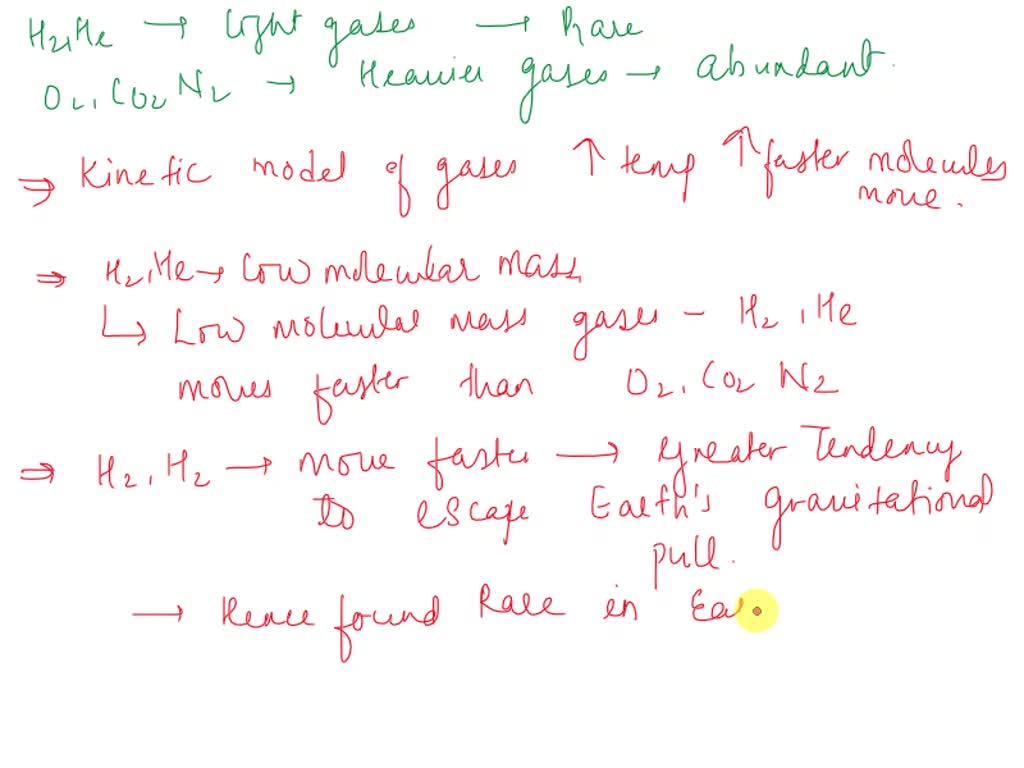 H2, He → Light gases → Rare
O2, CO2 N2 → Heavier gases → abundant.
⇒ Kinetic model of gases ↑ temp ↑ faster molecules
move.
⇒ H2, He → Low molecular mass,
↳ Low molecular mass gases - H2, He
moves faster than O2, CO2 N2
⇒ H2, H2 → move faster → Greater Tendency
to escape Earth's gravitational
pull.
→ Hence found Rare in Ear